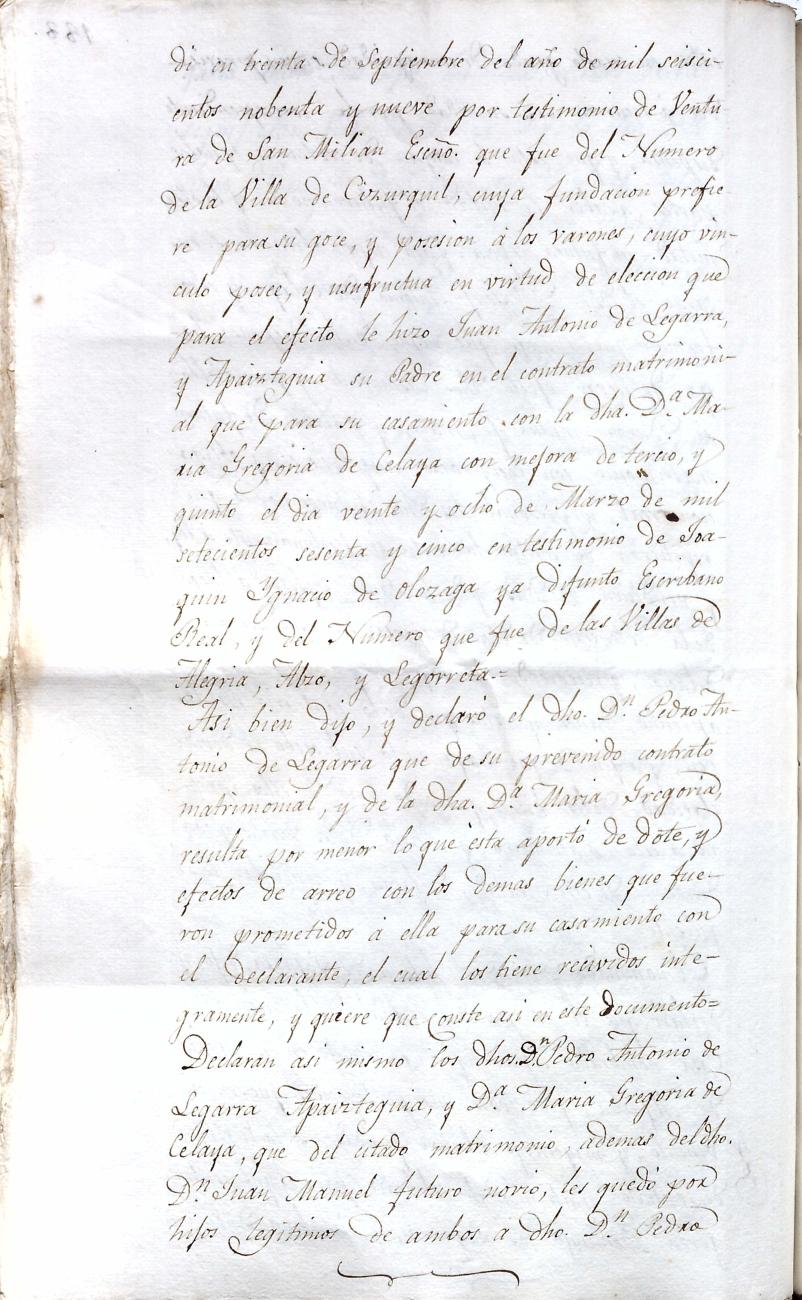 di en treinta de Septiembre del año de mil seisci-
entos nobenta y nueve por testimonio de Ventu
ra de San Milian Escño. que fue del Numero
de la Villa de Cizurquil, cuya fundacion profie-
re para su goce, y posesion à los varones, cuyo vin-
culo posee, y usufructua en virtud de eleccion que
para el efecto le hizo Juan Antonio de Legarra,
y Apaizteguia su Padre en el contrato matrimoni-
al que para su casamiento con la dha. D.ª Ma-
ria Gregoria de Celaya con mejora de tercio, y
quinto el dia veinte y ocho de Marzo de mil
setecientos sesenta y cinco en testimonio de Joa-
quin Ygnacio de Olozaga ya difunto Escribano
Real, y del Numero que fue de las Villas de
Alegria, Abzo, y Legorreta.=
Asi bien dijo, y declaró el dho. D.n Pedro An-
tonio de Legarra que de su prevenido contrato
matrimonial, y de la dha. D.ª Maria Gregoria,
resulta por menor lo que esta aportó de dote, y
efectos de arreo con los demas bienes que fue-
ron prometidos à ella para su casamiento con
el declarante, el cual los tiene recividos inte-
gramente, y quiere que conste asi en este documento=
Declaran asi mismo los dhos. D.n Pedro Antonio de
Legarra Apaizteguia, y D.ª Maria Gregoria de
Celaya, que del citado matrimonio, ademas del dho.
D.n Juan Manuel futuro novio, les quedó por
hijos legitimos de ambos a dho. D.n Pedro